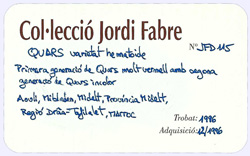 Col·lecció Jordi Fabre
QUARS varietat hematoide Nº JFD115
Primera generació de Quars molt vermell amb segona
generació de Quars incolor
Aouli, Mibladen, Midelt, Província Midelt,
Regió Drâa-Tafilalet, MARROC
Trobat: 1996
Adquisició: 12/1996